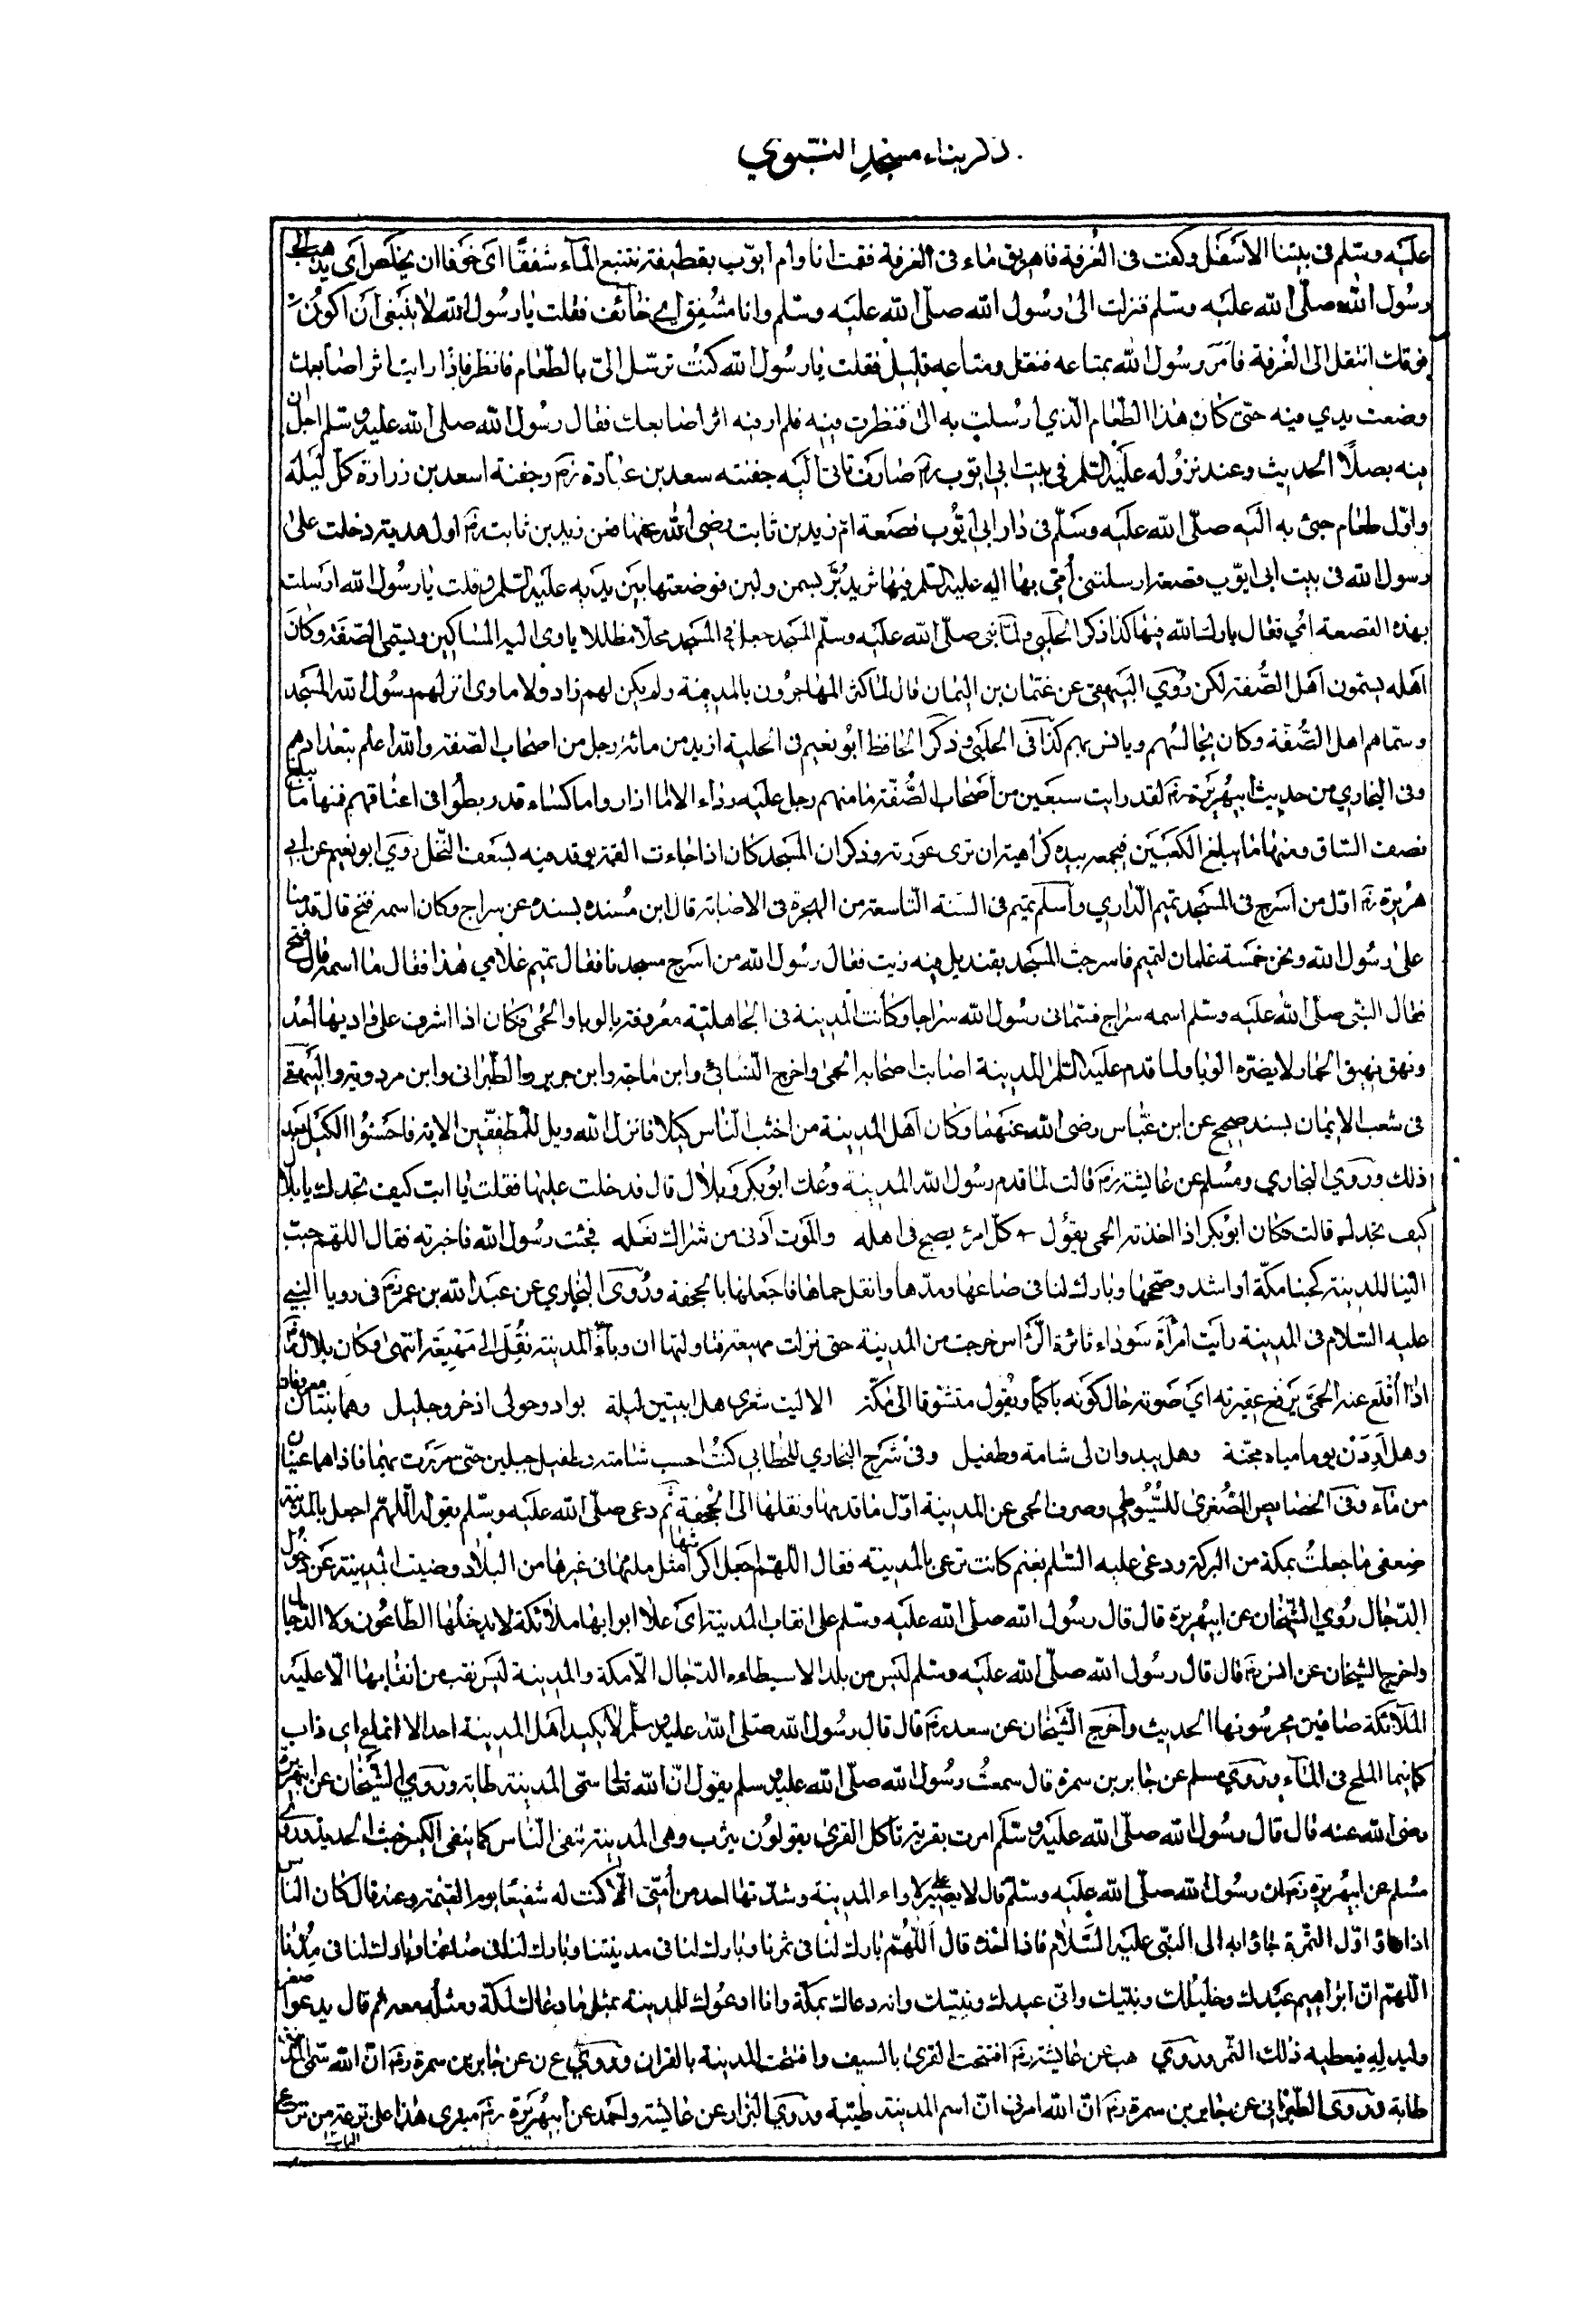 ذكر بناء مسجد النبوي
عليه وسلم فى بيتنا الاسفل وكنت فى الغرفة فاهريق ماء فى الغرفة فقمت انا وام ايوب بقطيفة نتتبع الماء شفقا اى خوفا ان يخلص اى يصل الى
رسول الله صلى الله عليه وسلم فنزلت الى رسول الله صلى الله عليه وسلم وانا مشفق اى خائف فقلت يا رسول الله لا ينبغى ان اكون
فوقك انتقل الى الغرفة فامر رسول الله بمتاعه فنقل ومتاعه قليل فقلت يا رسول الله كنت ترسل الى بالطعام فانظر فاذا رايت اثر اصابعك
وضعت يدي فيه حتى كان هذا الطعام الذي ارسلت به الى فنظرت فيه فلم ار فيه اثر اصابعك فقال رسول الله صلى الله عليه وسلم اجل ان
فيه بصلا الحديث وعند نزوله عليه السلم فى بيت ابى ايوب رضـ صارت تاتى اليه جفنته سعد بن عبادة رضـ وجفنة اسعد بن زرارة كل ليلة
واول طعام جئ به اليه صلى الله عليه وسلم فى دار ابى ايوب قصعة ام زيد بن ثابت رضى الله عنها فعن زيد بن ثابت رضـ اول هدية دخلت على
رسول الله فى بيت ابى ايوب قصعة ارسلتنى امى بها اليه عليه السلم فيها ثريد بر بسمن ولبن فوضعتها بين يديه عليه السلم وقلت يا رسول الله ارسلت
بهذه القصعة امي فقال بارك الله فيها كذا ذكر الحلبي ولما بنى صلى الله عليه وسلم المسجد جعل في المسجد محلا مظللا ياوى اليه المساكين ويسمى الصفة وكان
اهله يسمون اهل الصفة لكن روي البيهقى عن عثمان بن اليمان قال لما كثر المهاجرون بالمدينة ولم يكن لهم زاد ولا ماوى انزلهم رسول الله المسجد
وسماهم اهل الصفة وكان يجالسهم ويانس بهم كذا فى الحلبى وذكر الحافظ ابو نعيم فى الحلية ازيد من مائة رجل من اصحاب الصفة والله اعلم بتعدادهم
وفى البخاري من حديث ابيهريرة رضـ لقد رايت سبعين من اصحاب الصفة ما منهم رجل عليه رداء الا اما ازار واما كساء قد ربطوا فى اعناقهم فمنها ما يبلغ
نصف الساق ومنها ما يبلغ الكعبين فيجمعه بيده كراهية ان ترى عورته وذكر ان المسجد كان اذا جاءت العتمة يوقد فيه بسعف النخل روي ابو نعيم عن ابى
هريرة رضـ اول من اسرج فى المسجد تميم الداري واسلم تميم فى السنة التاسعة من الهجرة فى الاصابة قال ابن مسنده بسنده عن سراج وكان اسمه فتح قال قدمنا
على رسول الله ونحن خمسة غلمان لتميم فاسرجت المسجد بقنديل فيه زيت فقال رسول الله من اسرج مسجدنا فقال تميم غلامي هذا فقال ما اسمه قال فتح
فقال النبى صلى الله عليه وسلم اسمه سراج فسمانى رسول الله سراجا وكانت المدينة فى الجاهلية معروفة بالوبا والحمى وكان اذا اشرف على واديها احد
ونهق نهيق الحمار لا يضره الوبا ولما قدم عليه السلم المدينة اصابت اصحابه الحمى واخرج النسائى وابن ماجة وابن جرير والطبرانى وابن مردويه والبيهقى
فى شعب الايمان بسند صحيح عن ابن عباس رضى الله عنهما وكان اهل المدينة من اخبث الناس كيلا فانزل الله ويل للمطففين الاية فاحسنوا الكيل بعد
ذلك وروي البخاري ومسلم عن عايشة رضـ قالت لما قدم رسول الله المدينة وعك ابو بكر وبلال قال فدخلت عليها فقلت يا ابت كيف تجدك يا بلال
كيف تجدك قالت فكان ابو بكر اذا اخذته الحمى يقول كل امرئ يصبح فى اهله والموت ادنى من شراك نعله فجئت رسول الله فاخبرته فقال اللهم حبب
الينا المدينة كحبنا مكة او اشد وصححها وبارك لنا فى صاعها ومدها وانقل حماها فاجعلها بالجحفة وروى البخاري عن عبد الله بن عمر رضـ فى رويا النبى
عليه السلام فى المدينة رايت امرأة سوداء ثائرة الراس خرجت من المدينة حتى نزلت مهيعة فتاولتها ان وباء المدينة نقل الى مهيعة انتهى وكان بلال رضـ
اذا اقلع عنه الحمى يرفع عقيرته اي صوته حال كونه باكيا ويقول متشوقا الى مكة الا ليت شعرى هل ابيتن ليلة بواد وحولى اذخر وجليل وهما نبتان معروفان
وهل اردن يوما مياه مجنة وهل يبدوان لى شامة وطفيل وفى شرح البخاري للخطابى كنت احسب شامة وطفيل جبلين حتى مررت بهما فاذا هما عينان
من ماء وفى الخصايص الصغرى للسيوطى وصرف الحمى عن المدينة اول ما قدمها ونقلها الى الجحفة ثم دعى صلى الله عليه وسلم يقول اللهم اجعل بالمدينة
ضعفى ما جعلت بمكة من البركة ودعى عليه السلم بغنم كانت ترعى بالمدينة فقال اللهم اجعل اكراشها مثل ملئها فى غيرها من البلاد وصينت المدينة عن دخول
الدجال روي الشيخان عن ابيهريرة قال قال رسول الله صلى الله عليه وسلم على انقاب المدينة اى على ابوابها ملائكة لا يدخلها الطاعون ولا الدجال
واخرج الشيخان عن انس رضـ قال قال رسول الله صلى الله عليه وسلم ليس من بلد الا سيطاءه الدجال الا مكة والمدينة ليس نقب من انقابها الا عليه
الملائكة صافين يحرسونها الحديث واخرج الشيخان عن سعد رضـ قال قال رسول الله صلى الله عليه وسلم لا يكيد اهل المدينة احد الا انملع اي ذاب
كما ينما الملح فى الماء وروي مسلم عن جابر بن سمرة قال سمعت رسول الله صلى الله عليه وسلم يقول ان الله تعالى سمى المدينة طابة وروي الشيخان عن ابيهريرة
رضى الله عنه قال قال رسول الله صلى الله عليه وسلم امرت بقرية تاكل القرى يقولون يثرب وهى المدينة تنفى الناس كما ينفى الكير خبث الحديد وروى
مسلم عن ابيهريرة رضـ ان رسول الله صلى الله عليه وسلم قال لا يصبر على لاواء المدينة وشدتها احد من امتى الا كنت له شفيعا يوم القيمة وعنه قال كان الناس
اذا راوا اول الثمرة جاؤا به الى النبى عليه السلام فاذا اخذه قال اللهم بارك لنا فى ثمرنا وبارك لنا فى مدينتنا وبارك لنا فى صاعنا وبارك لنا فى مدنا
اللهم ان ابراهيم عبدك وخليلك ونبيك وانى عبدك ونبيك وانه دعاك بمكة وانا ادعوك للمدينة بمثل ما دعاك لمكة ومثله معه ثم قال يدعو اصغر
وليد له فيعطيه ذلك الثمر وروي هب عن عايشة رضـ افتتحت القرى بالسيف وافتتحت المدينة بالقران وروي ع ن عن جابر بن سمرة رضـ ان الله سمى المدينة
طابة وروى الطبرانى عن جابر بن سمرة رضـ ان الله امرنى ان اسم المدينة طيبة وروي البزار عن عايشة واحمد عن ابيهريرة رضـ منبرى هذا على ترعة من ترع